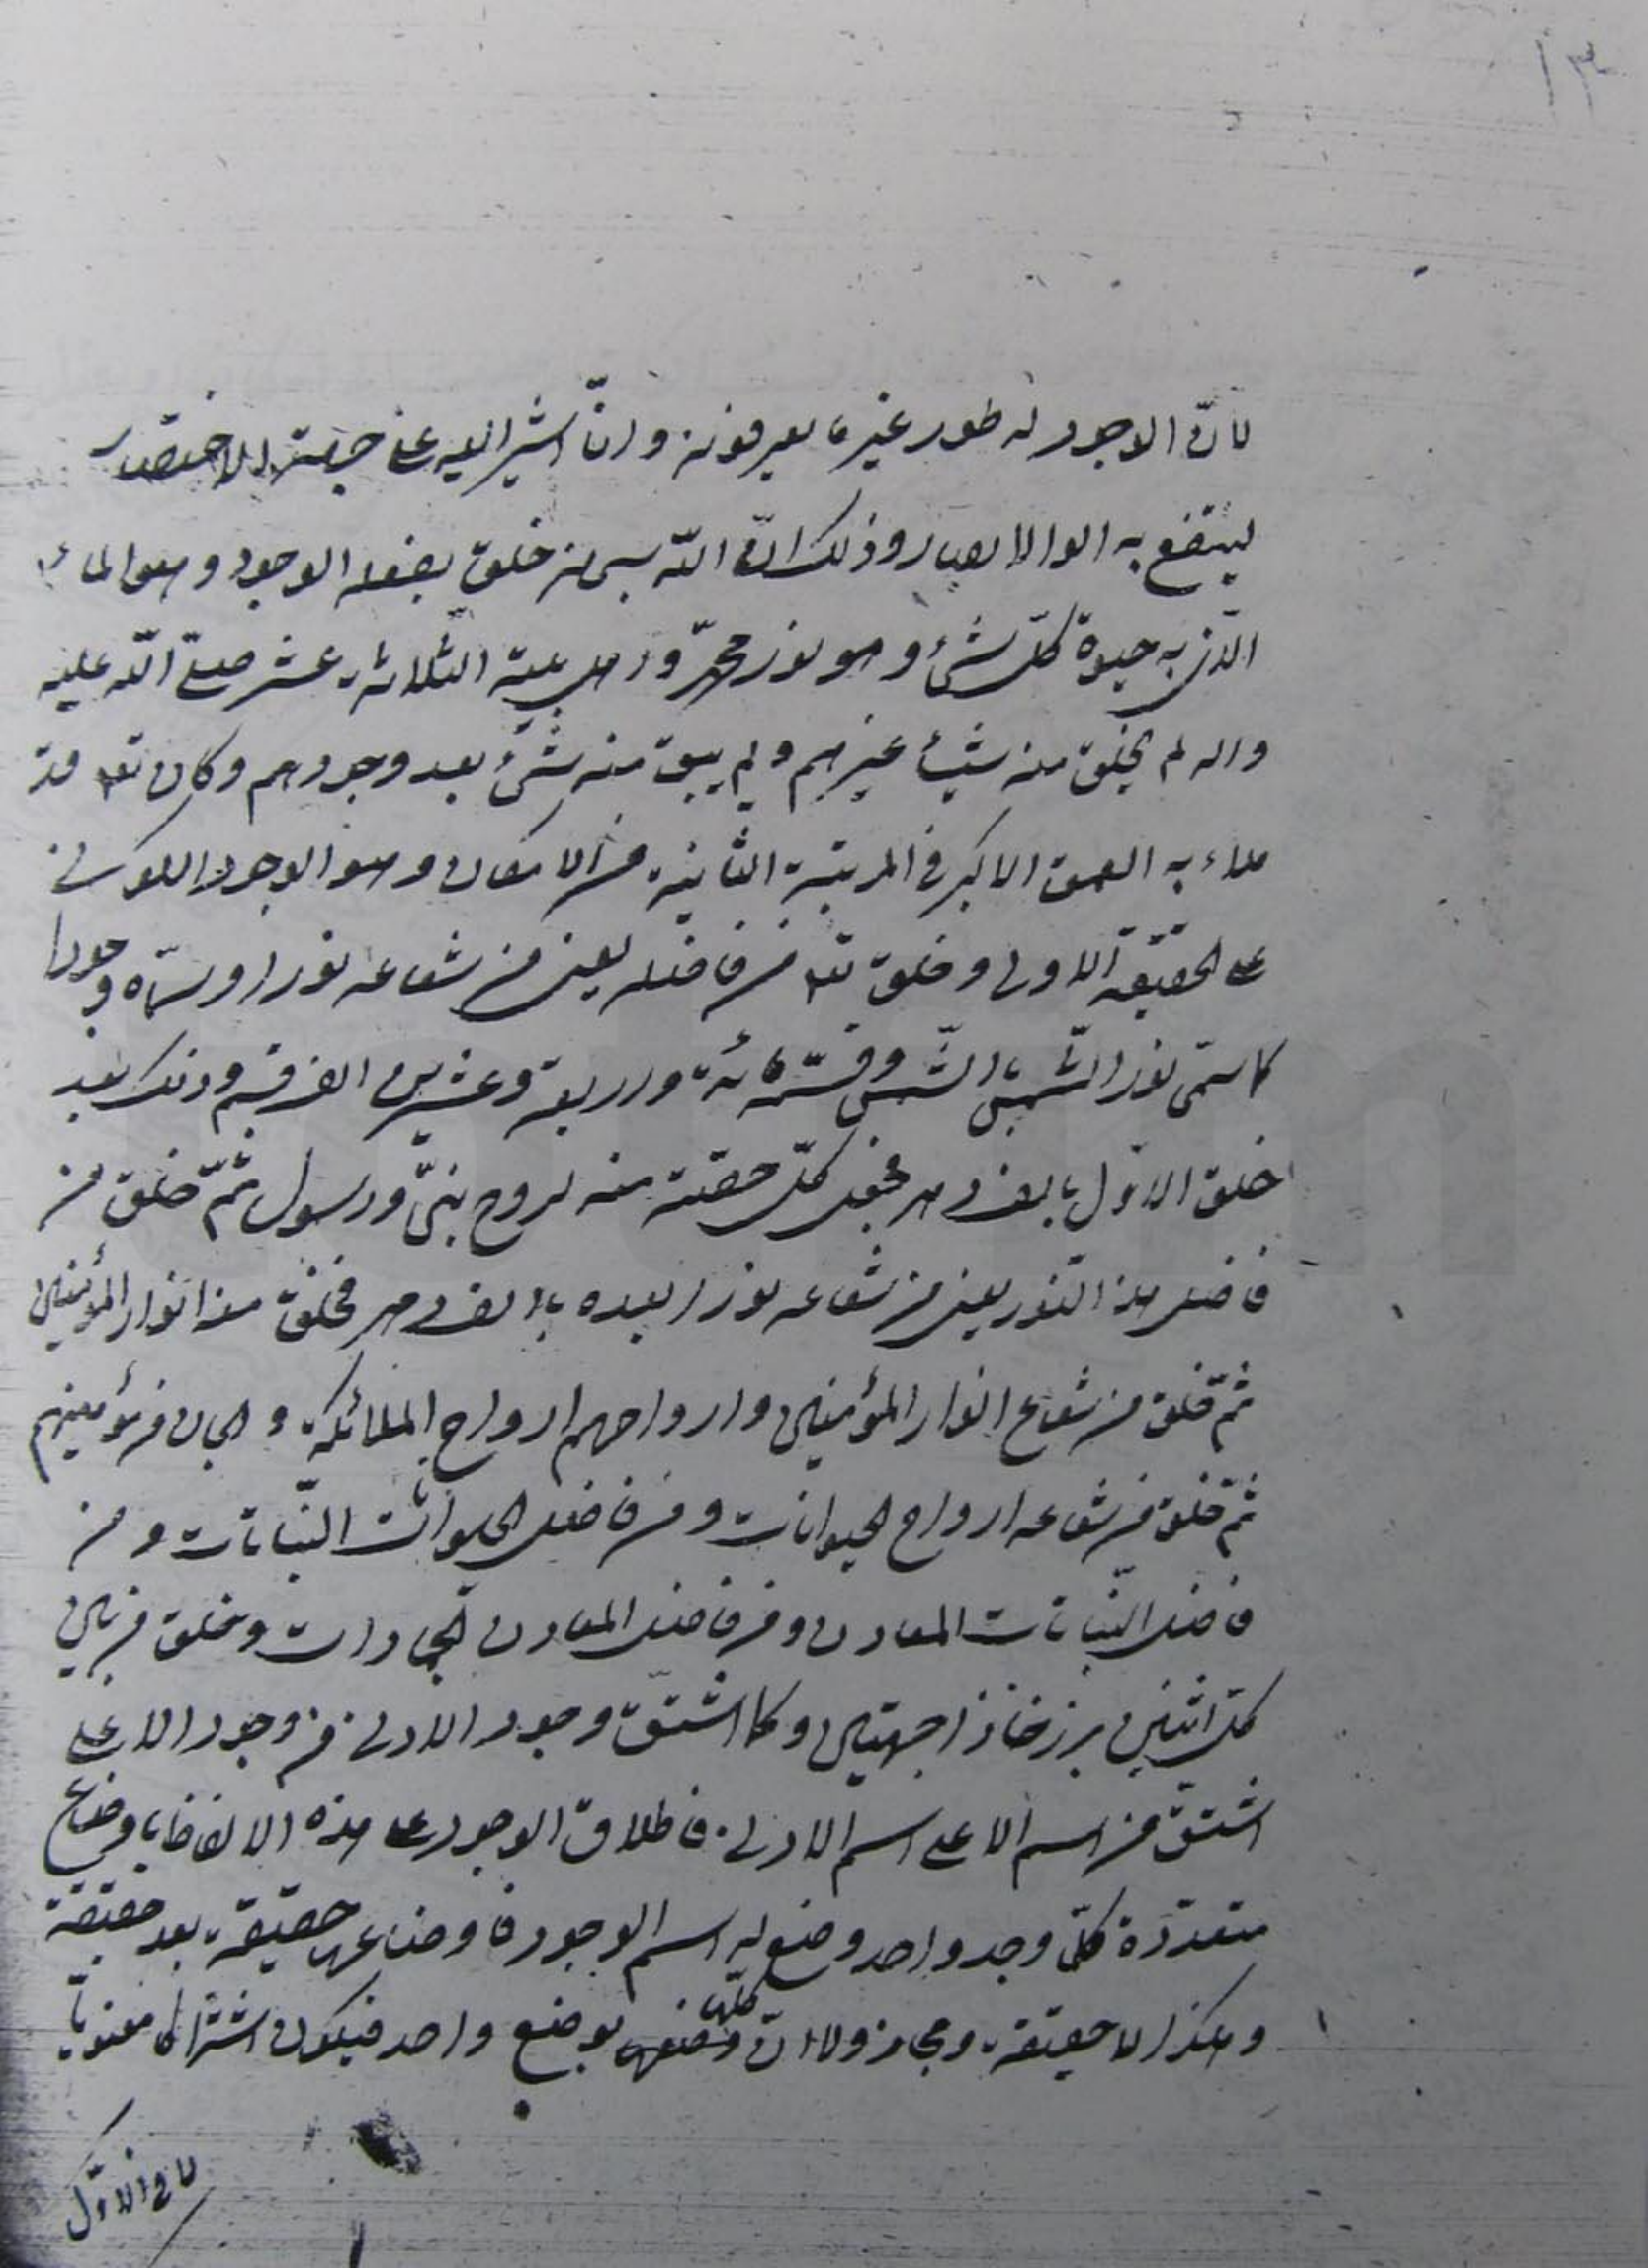 ١٣
لانّ الوجود له طور غير ما يعرفونه وانّا اشير اليه على جهة الاختصار
لينتفع به اولوا الابصار وذلك انّ اللّه سبحانه خلق بفعله الوجود وهو الماء
الّذي به حيوة كلّ شئ وهو نور محمّد واهل بيته الثّلاثة عشر صلّى اللّه عليه
واله لم يخلق منه شيئا غيرهم ولم يبق منه شئ بعد وجودهم وكان تعه قد
ملاء به العمق الاكبر في المرتبة الثانية من الامكان وهو الوجود الكوني
على الحقيقة الاولى وخلق تعه من فاضله يعني من شعاعه نورا وسمّاه وجودا
كما سمّى نور الشّمس بالشّمس وقسّمه مائة واربعة وعشرين الف قسم وذلك بعد
خلق الاوّل بالف دهر فجعل كلّ حصّة منه لروح نبيّ ورسول ثمّ خلق من
فاضل هذا النّور يعني من شعاعه نورا بعده بالف دهر فخلق منه انوار المؤمنين
ثمّ خلق من شعاع انوار المؤمنين وارواحهم ارواح الملائكة والجان من مؤمنيهم
ثمّ خلق من شعاعه ارواح الحيوانات ومن فاضل الحيوانات النّباتات ومن
فاضل النّباتات المعادن ومن فاضل المعادن الجمادات وخلق من بين
كلّ اثنين برزخا ذا جهتين وكما اشتقّ وجود الادنى من وجود الاعلى
اشتقّ من اسم الاعلى اسم الادنى فاطلاق الوجود على هذه الالفاظ باوضاع
متعدّدة كلّ وجد واحد وضع له اسم الوجود فاوضاعها حقيقة بعد حقيقة
وهكذا لا حقيقة ومجاز ولا انّ كلّها وضعها بوضع واحد فيكون اشتراكا معنويّا
لانّ الاوّل